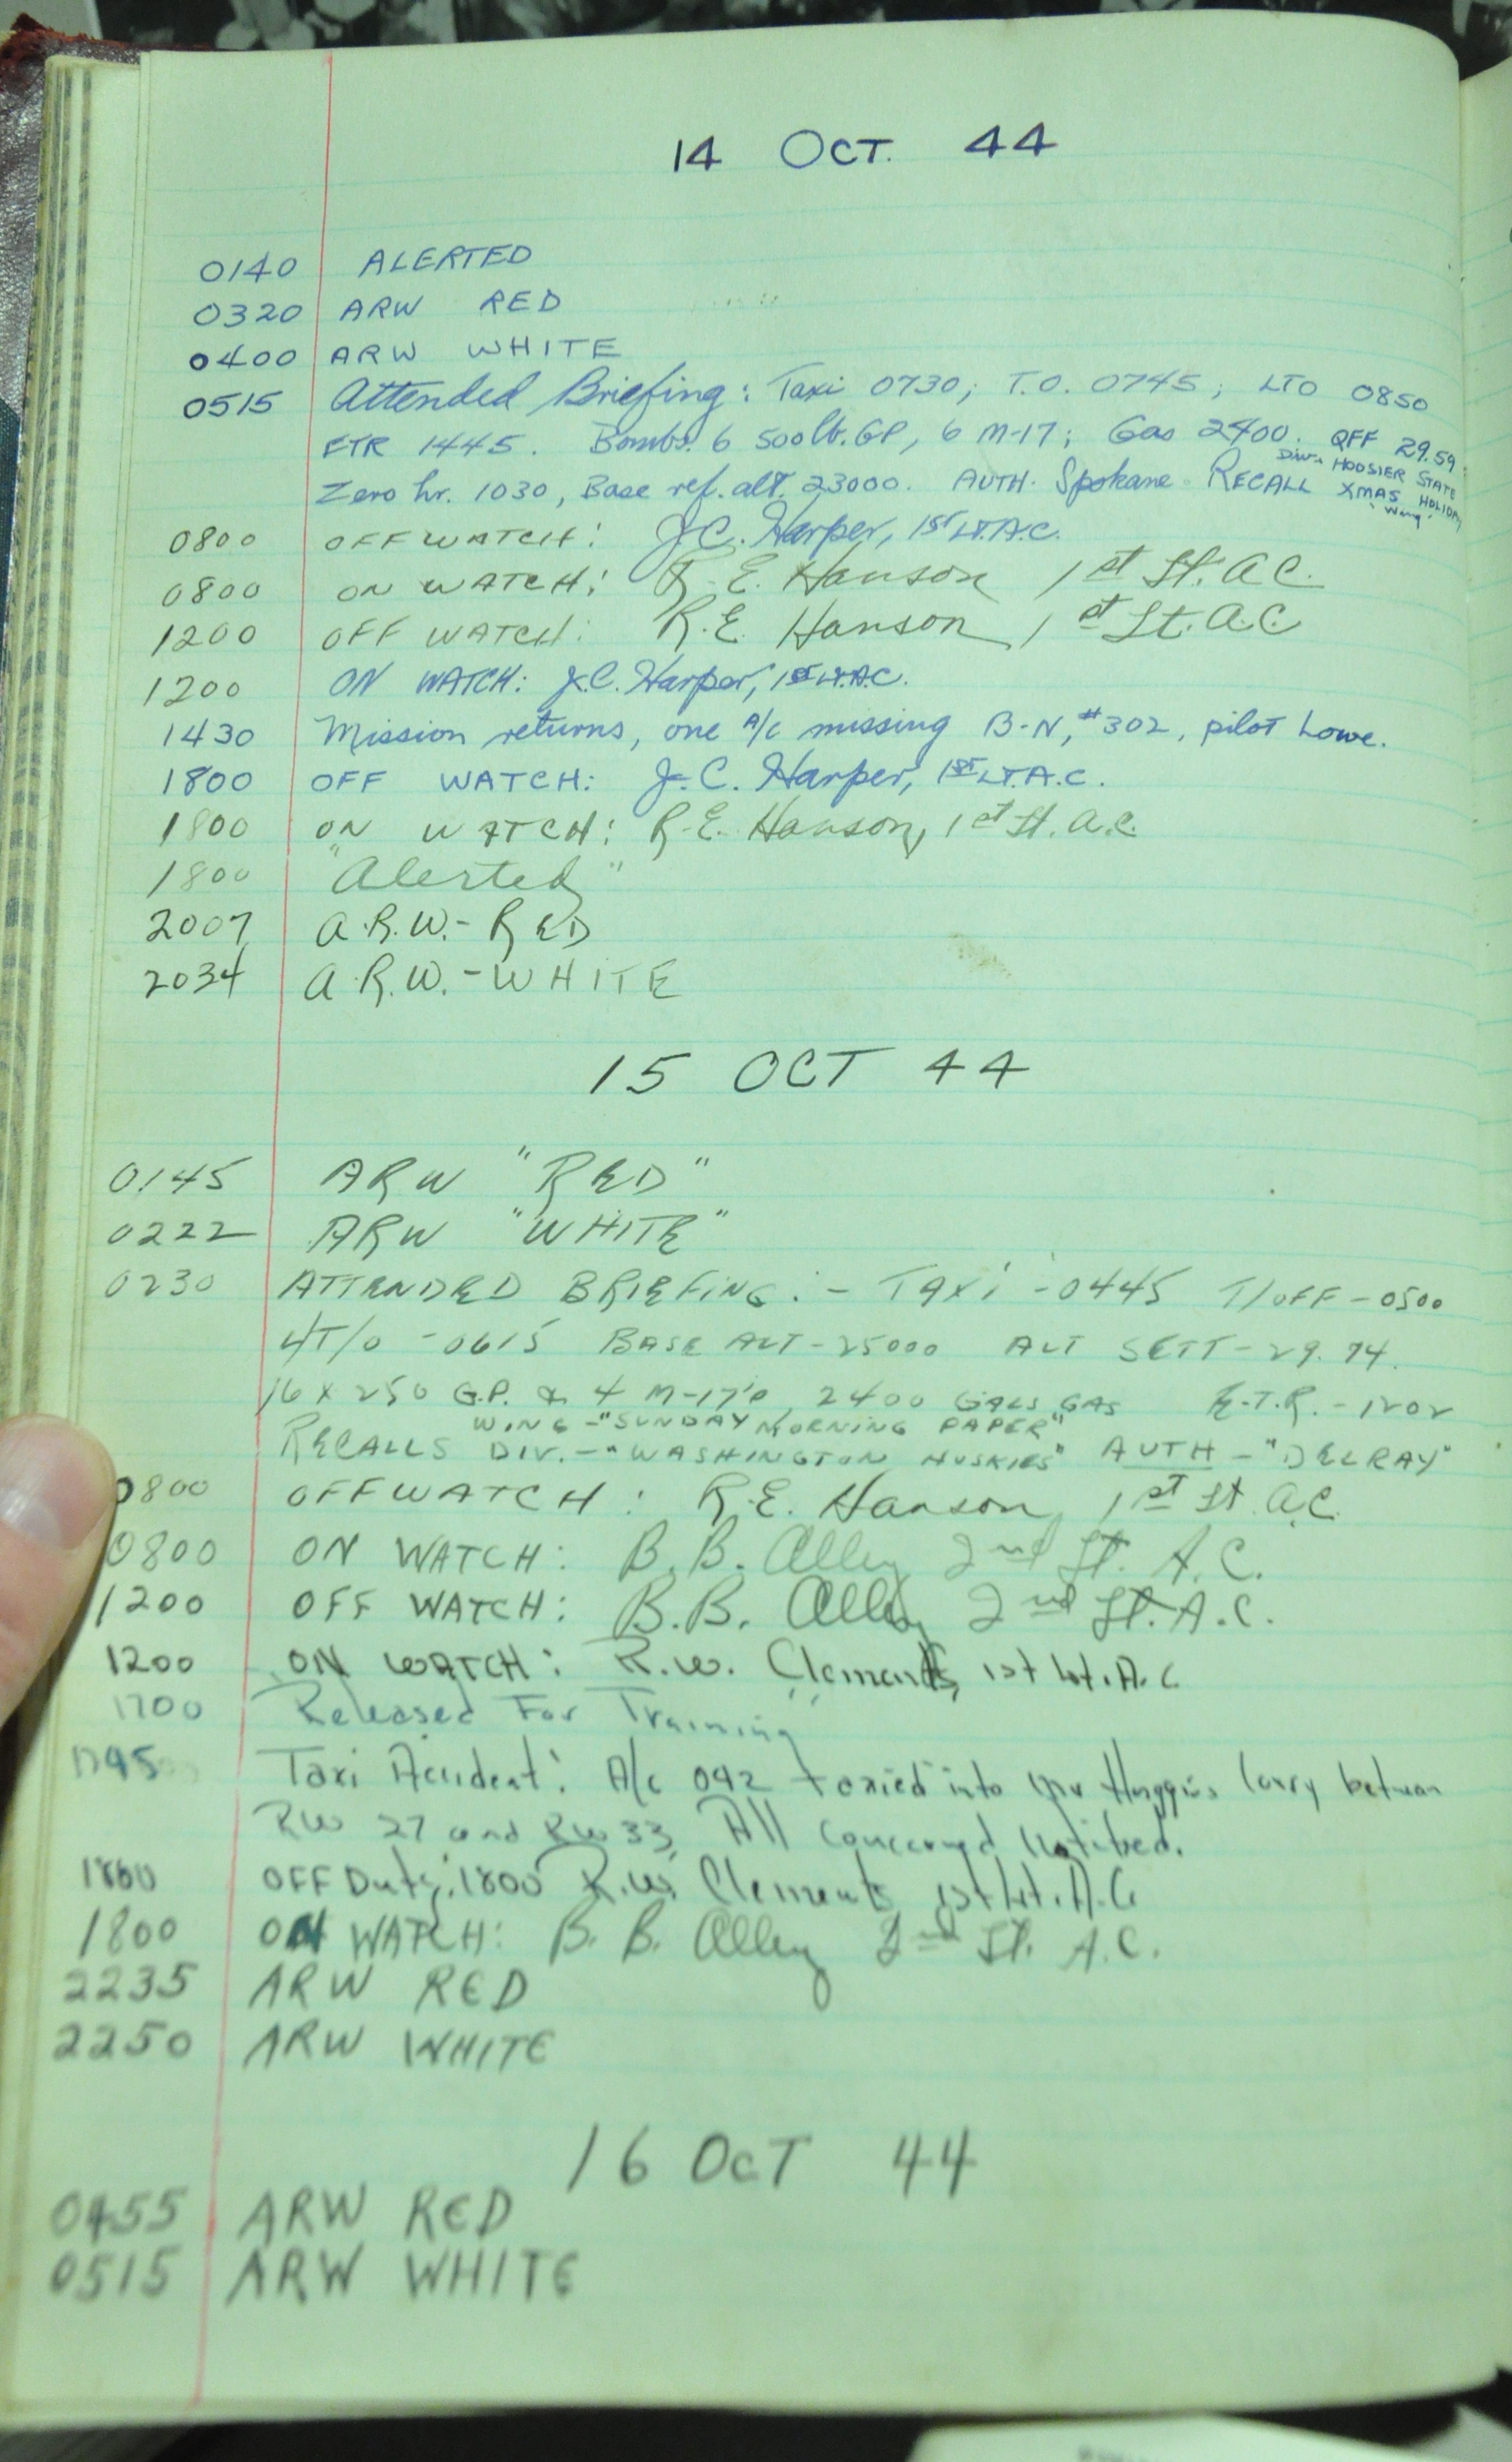 14 OCT. 44
0140 ALERTED
0320 ARW RED
0400 ARW WHITE
0515 Attended Briefing: Taxi 0730; T.O. 0745; LTO 0850
ETR 1445. Bombs. 6 500lb. GP, 6 M-17; Gas 2400. QFF 29.59
Zero hr. 1030, Base ref. alt. 23000. AUTH. Spokane. RECALL Div. HOOSIER STATE
XMAS HOLIDAY
"Wing"
0800 OFF WATCH: J.C. Harper, 1ST LT. A.C.
0800 ON WATCH: R.E. Hanson 1st Lt. A.C.
1200 OFF WATCH: R.E. Hanson, 1st Lt. A.C
1200 ON WATCH: J.C. Harper, 1ST LT. A.C.
1430 Mission returns, one A/c missing B-N, #302, pilot Lowe.
1800 OFF WATCH: J.C. Harper, 1ST LT. A.C.
1800 ON WATCH: R.E. Hanson, 1st Lt. A.C.
1800 "Alerted"
2007 A.R.W.- RED
2034 A.R.W.- WHITE
15 OCT 44
0145 ARW "RED"
0222 ARW "WHITE"
0230 ATTENDED BRIEFING:- TAXI -0445 T/OFF-0500
L/T/O -0615 BASE ALT-25000 ALT SETT-29.74.
16 x 250 G.P. & 4 M-17's, 2400 GALS GAS E.T.R.-1202
WING-"SUNDAY MORNING PAPER"
RECALLS DIV.-"WASHINGTON HUSKIES" AUTH-"DELRAY"
0800 OFF WATCH: R.E. Hanson, 1st Lt A.C.
0800 ON WATCH: B.B. Alley 2nd Lt. A.C.
1200 OFF WATCH: B.B. Alley 2nd Lt. A.C.
1200 ON WATCH: R.W. Clements, 1st Lt. A.C
1700 Released For "Training"
1745 Taxi Accident: A/c 042 taxied into lorry between
RW 27 and RW 33, All concerned Notified.
1800 OFF Duty: 1800 R.W. Clements 1st Lt. A.C
1800 ON WATCH: B.B. Alley 2nd Lt. A.C.
2235 ARW RED
2250 ARW WHITE
16 OCT 44
0455 ARW RED
0515 ARW WHITE